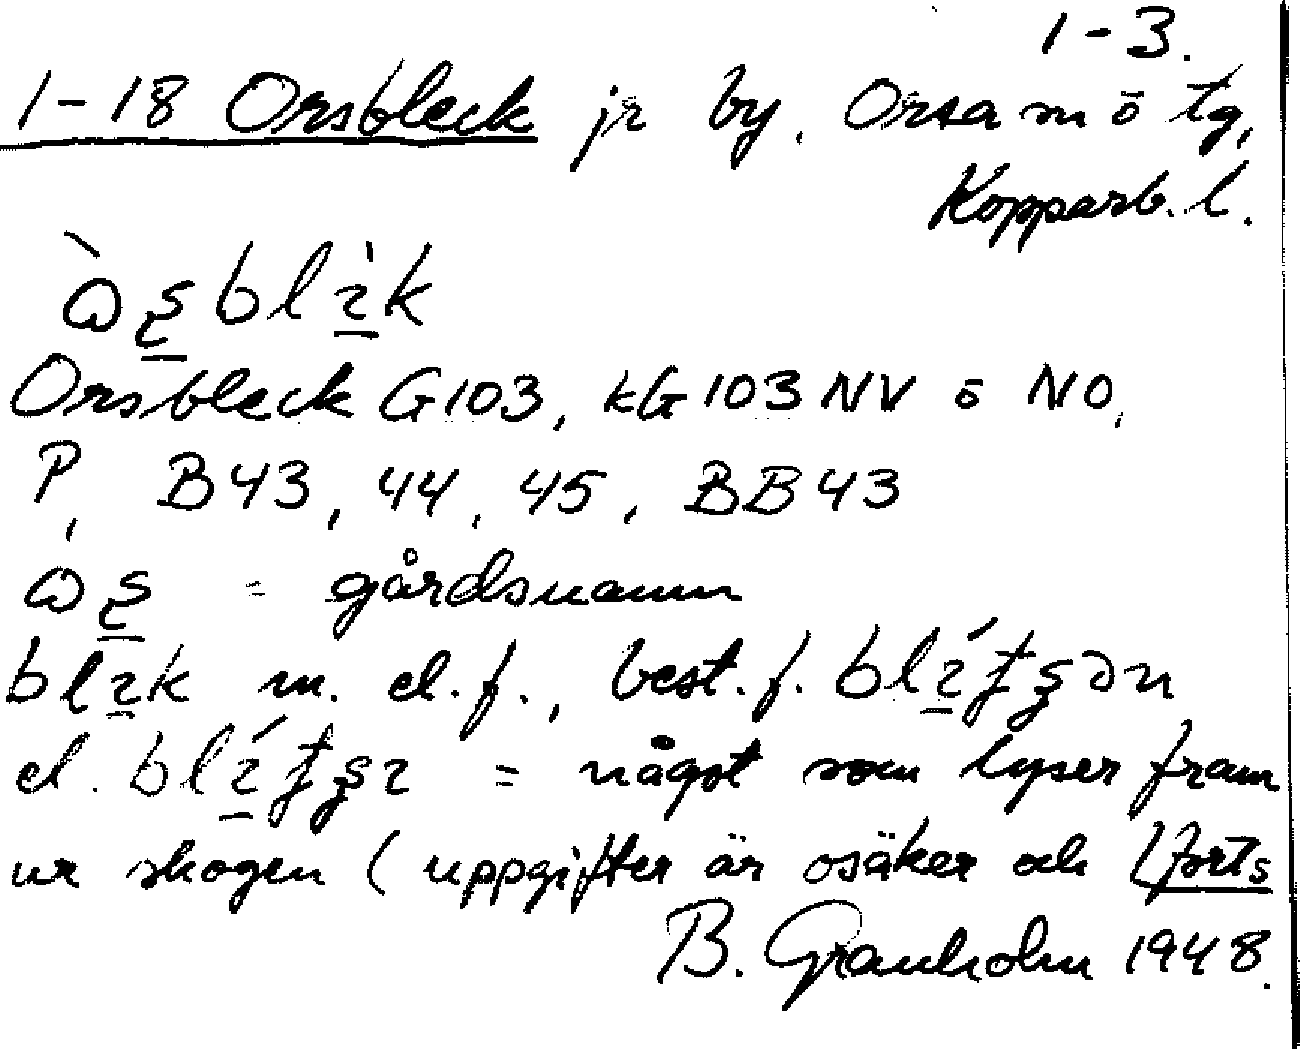 1-3.
1-18 Orsbleck jr by. Orsa m ō tg,
Kopparb. l.
Orsbleck G103, kG 103 NV ō NO,
P, B43, 44, 45, BB43
= gårdsnamn
m. el. f., best. f.
el. = något som lyser fram
ur skogen (uppgifter är osäker och (forts
B. Granholm 1948.